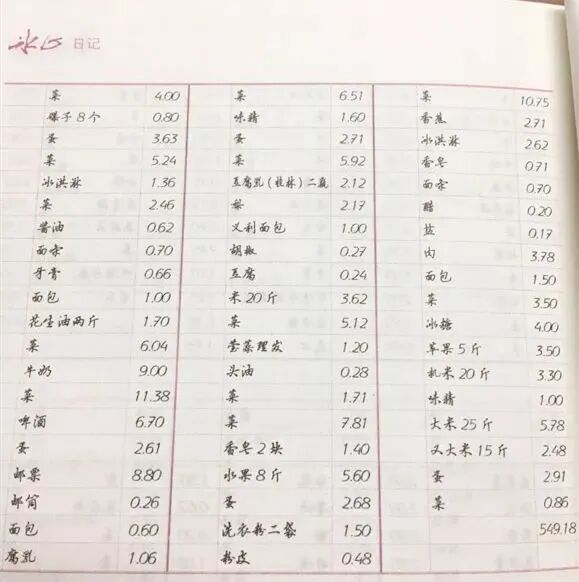 冰心 日记
菜 4.00
煤子8个 0.80
蛋 3.63
菜 5.24
冰淇淋 1.36
菜 2.46
酱油 0.62
面条 0.70
牙膏 0.66
面包 1.00
花生油两斤 1.70
菜 6.04
牛奶 9.00
菜 11.38
啤酒 6.70
蛋 2.61
邮票 8.80
邮筒 0.26
面包 0.60
腐乳 1.06
菜 6.51
味精 1.60
蛋 2.71
菜 5.92
豆腐乳(桂林)二瓶 2.12
梨 2.17
义利面包 1.00
胡椒 0.27
豆腐 0.24
米20斤 3.62
菜 5.12
莹藻理发 1.20
头油 0.28
菜 1.71
菜 7.81
香皂2块 1.40
水果8斤 5.60
蛋 2.68
洗衣粉二袋 1.50
粉皮 0.48
菜 10.75
香蕉 2.71
冰淇淋 2.62
香皂 0.71
面条 0.70
醋 0.20
盐 0.17
肉 3.78
面包 1.50
菜 3.50
冰糖 4.00
苹果5斤 3.50
机米20斤 3.30
味精 1.00
大米25斤 5.78
又大米15斤 2.48
蛋 2.91
菜 0.86
549.18